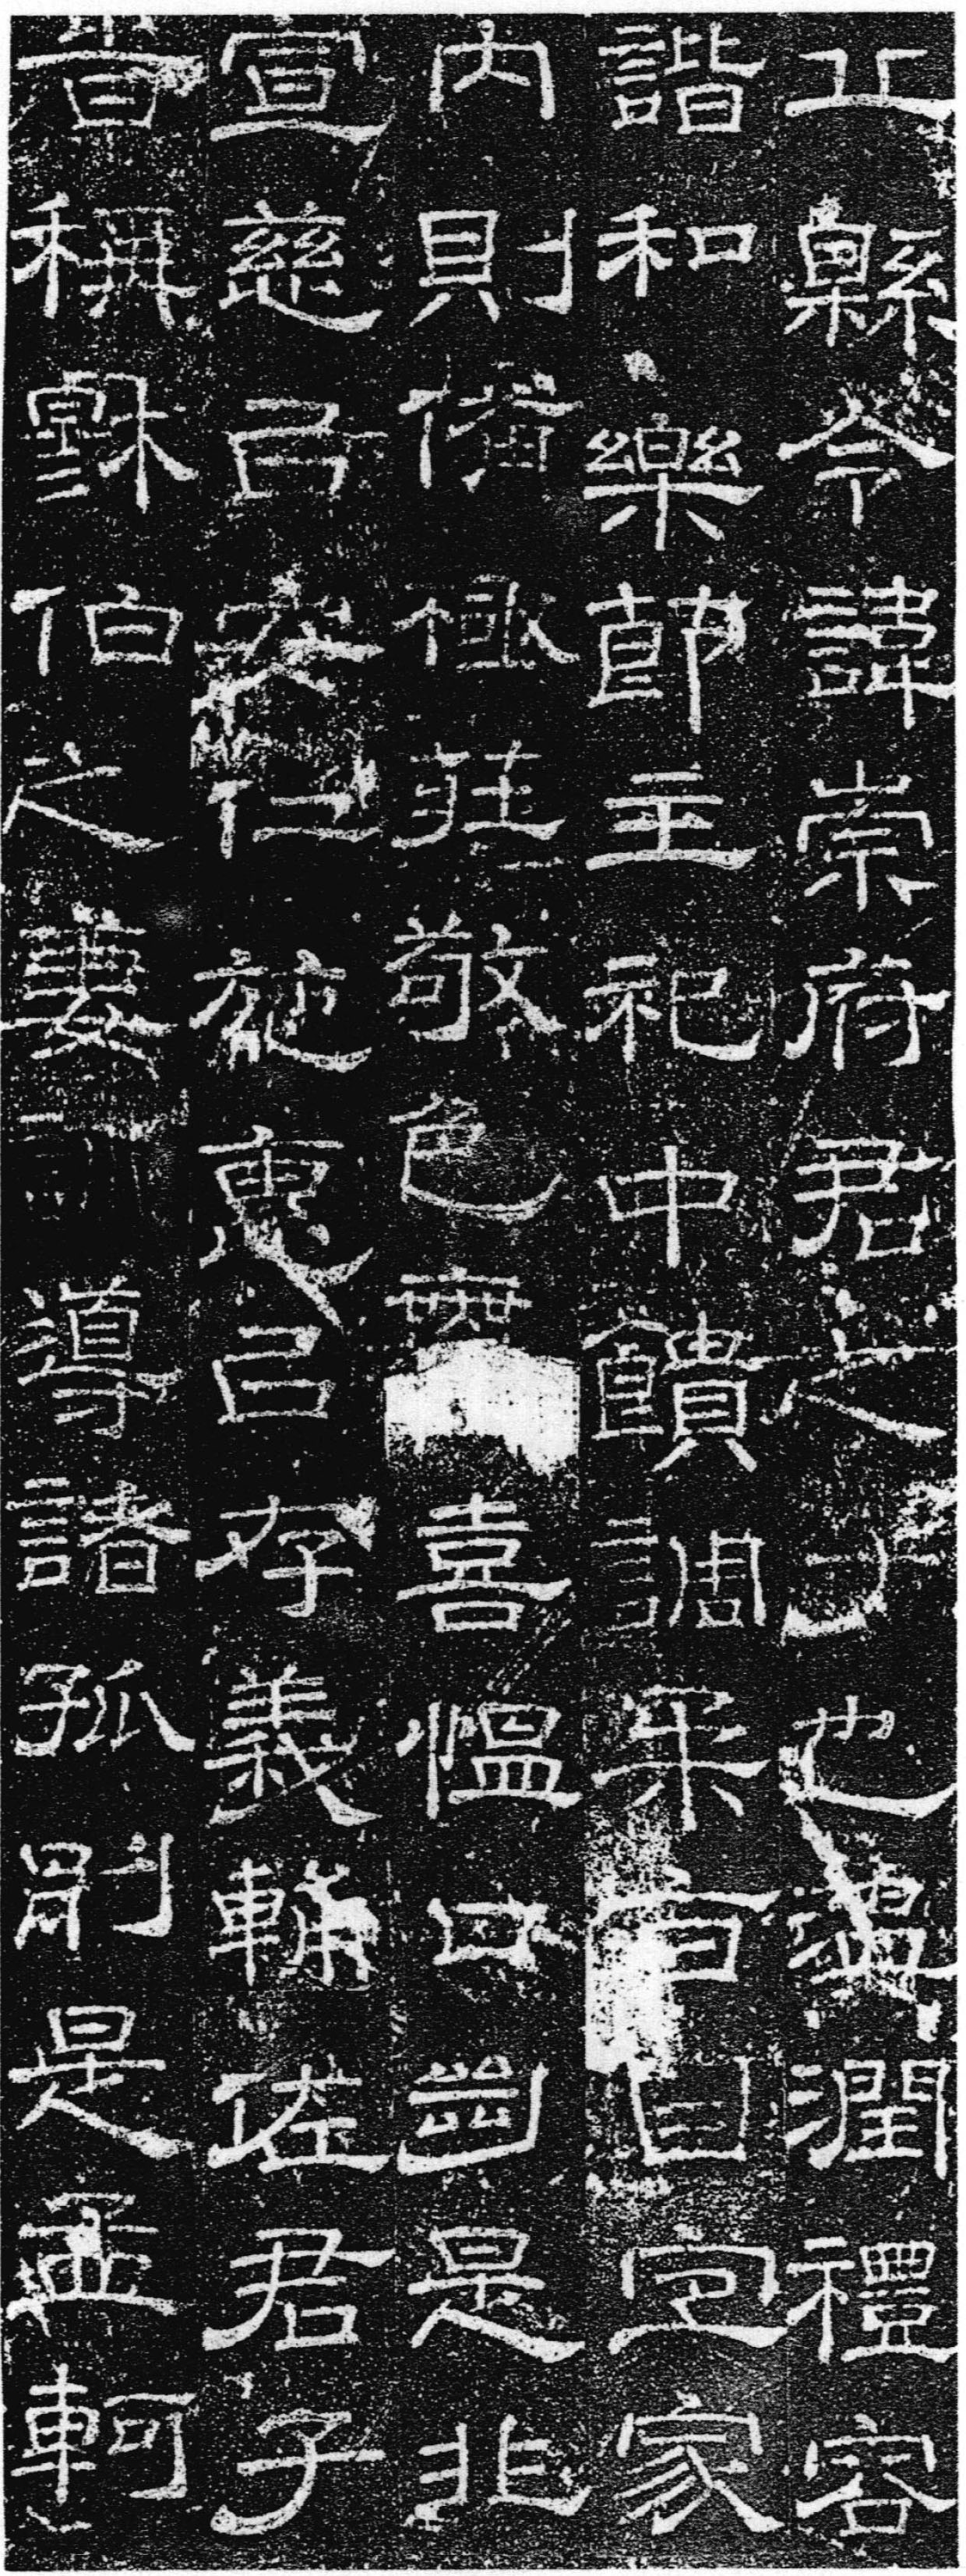 縣令諱崇府君之也溫潤禮容
諧和樂節主祀中饋調柔宜家
內則備極莊敬色無喜慍口齒是非
宣慈安仁施惠己存義輔佐君子
昔稱穆伯之妻訓導諸孤則是孟軻